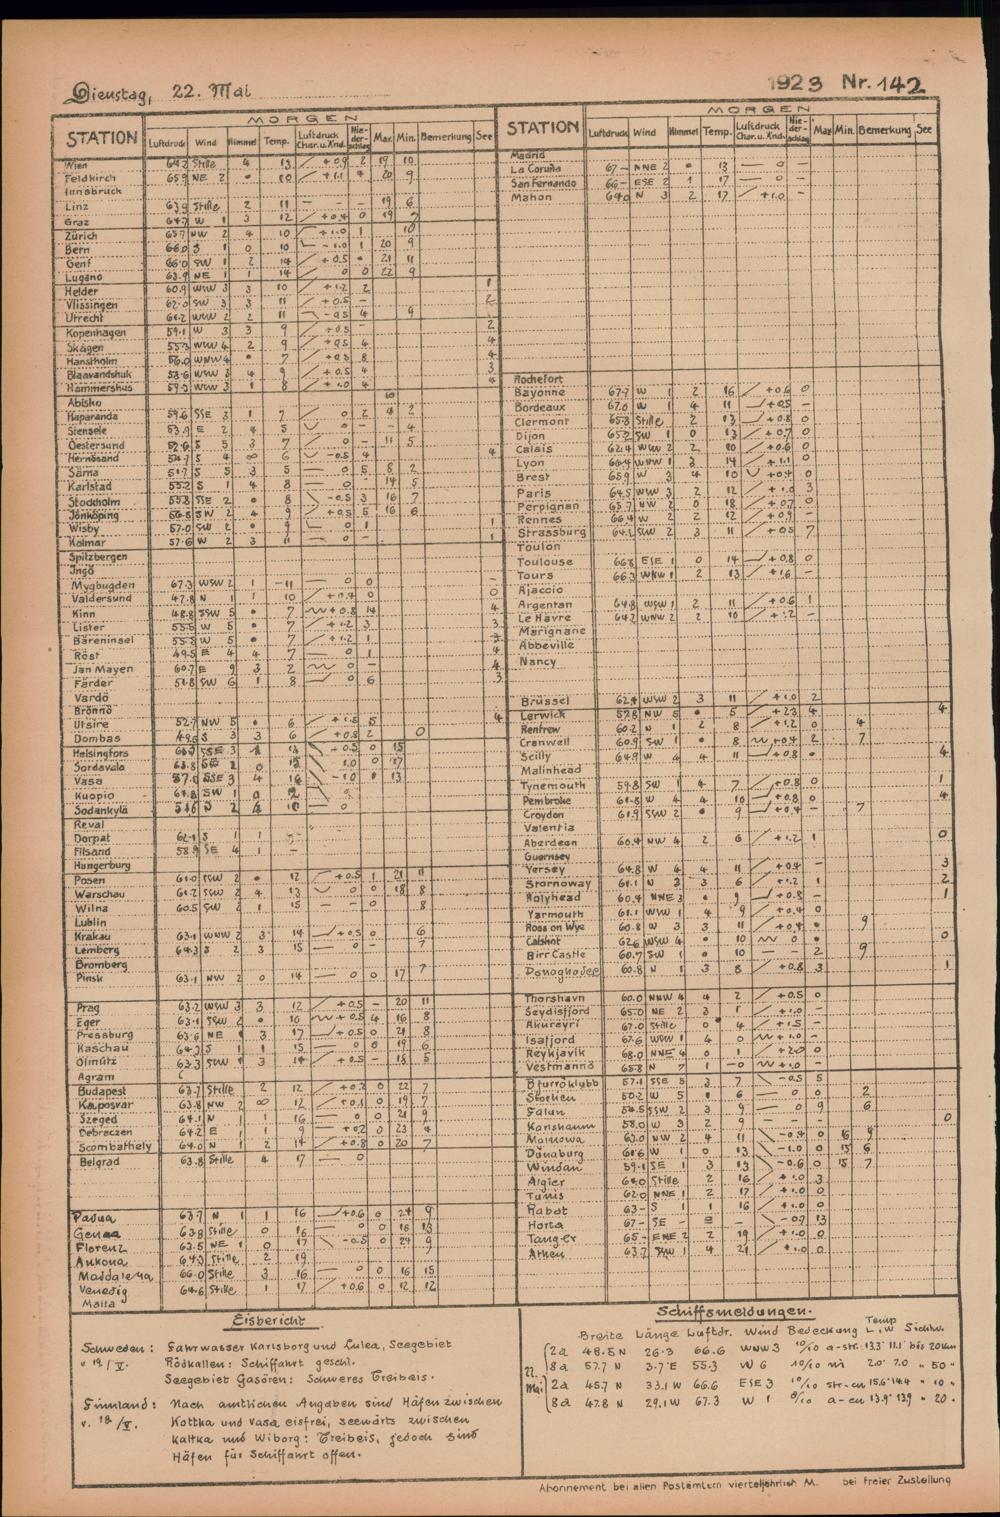 Dienstag, 22. Mai 1923 Nr. 142
MORGEN
STATION Luftdruck Wind Himmel Temp. Luftdruck Char. u. Änd. Nie-der-schlag Max Min. Bemerkung See
Wien 64.2 Stille 4 13 +0.9 2 19 10
Feldkirch 65.9 NE 2 • 10 +1.1 4 20 9
Innsbruck
Linz 63.9 Stille 2 11 – – 19 6
Graz 64.7 W 1 3 12 +0.4 0 19 7
Zürich 65.7 NW 2 4 10 +1.0 1 10
Bern 66.0 S 1 0 10 -1.0 1 20 9
Genf 66.0 SW 1 2 14 +0.5 • 21 11
Lugano 63.9 NE 1 1 14 0 0 22 9
Helder 60.9 WSW 3 3 10 +1.2 2 1
Vlissingen 62.0 SW 3 3 11 +0.5 – 2
Utrecht 61.2 WSW 2 2 11 -0.5 4 9
Kopenhagen 59.1 W 3 3 9 +0.5 – 2
Skagen 55.3 WSW 4 2 9 +0.5 4 4
Hanstholm 56.0 WNW 4 • 7 +0.5 8 4
Blaavandshuk 58.6 WSW 3 4 9 +0.5 4 3
Hammershus 59.3 WSW 3 1 8 +1.0 4 4
Abisko
Haparanda 59.6 SSE 3 1 7 0 2 4 2
Stensele 53.9 E 2 4 5 0 – – 4
Oestersund 52.6 S 5 3 7 0 – 11 5
Hernösand 54.7 S 4 ∞ 6 -0.5 4 4
Särna 51.7 S 5 3 5 0 5 8 2
Karlstad 55.2 S 1 4 8 0 – 14 5
Stockholm 55.8 SSE 2 • 8 -0.5 3 16 7
Jönköping 56.8 SW 2 4 9 +0.5 5 16 6
Wisby 57.0 SW 2 • 9 0 1 1
Kalmar 57.6 W 2 3 11 0 – 1
Spitzbergen
Ingö
Mygbugden 67.3 WSW 2 1 -11 0 0 –
Valdersund 47.8 N 1 1 10 +0.4 0 0
Kinn 48.8 SSW 5 • 7 +0.8 14 4
Lister 55.5 W 5 • 7 +1.2 3 3
Bäreninsel 55.8 W 5 • 7 +1.2 1 3
Röst 49.5 E 4 4 7 0 1 4
Jan Mayen 60.7 E 9 3 2 0 – 4
Färder 51.8 SW 6 1 8 0 6 3
Vardö
Brönnö
Utsire 52.7 NW 5 • 6 +1.5 5 4
Dombas 49.6 S 3 3 6 +0.8 2 0
Helsingfors SSE 3 +0.5 0 15
Sordavala 2 0 1.0 0 17
Vasa SSE 3 4 -1.0 13
Kuopio SW 1
Sodankylä 2 4
Reval
Dorpat 62.1 S 1 1
Filsand SE 4 1 –
Hungerburg
Posen 61.0 SSW 2 • 12 +0.5 1 21 11
Warschau 61.2 SSW 2 4 13 0 0 18 8
Wilna 60.5 SW 2 1 15 – 0 8
Lublin
Krakau 63.1 WNW 2 3 14 +0.5 0 6
Lemberg 64.3 S 2 3 15 0 – 7
Bromberg
Pinsk 63.1 NW 2 0 14 0 0 17 7
Prag 63.2 WSW 3 3 12 +0.5 – 20 11
Eger 63.1 SSW 2 • 10 +0.5 4 16 8
Pressburg 63.6 NE 1 3 17 +0.5 0 21 8
Kaschau 64.3 S 1 1 15 0 0 19 6
Olmütz 63.3 SSW 1 3 14 +0.5 – 18 5
Agram
Budapest 63.7 Stille 2 12 +0.2 0 22 7
Kaposvar 63.8 NW 2 ∞ 12 +0.1 0 19 7
Szeged 64.1 N 1 1 16 0 0 21 9
Debreczen 64.2 E 1 1 9 +0.2 0 23 4
Scombathely 64.0 N 1 2 14 +0.8 0 20 7
Belgrad 63.8 Stille 4 17 0
Padua 63.7 N 1 1 16 +0.6 0 24 9
Genua 63.8 Stille 0 16 0 0 18 13
Florenz 63.5 NE 1 0 17 -0.5 0 24 9
Ankona 64.3 Stille 2 19
Maddalena 66.0 Stille 3 16 0 0 16 15
Venedig 64.6 Stille 1 17 +0.6 0 12 12
Malta
MORGEN
STATION Luftdruck Wind Himmel Temp. Luftdruck Char. u. Änd. Nie-der-schlag Max Min. Bemerkung See
Madrid
La Coruña 67– NNE 2 • 13 0 –
San Fernando 66– ESE 2 1 17 0 –
Mahon 64.0 N 3 2 17 +1.0
Rochefort
Bayonne 67.7 W 1 2 16 +0.6 0
Bordeaux 67.0 W 1 4 11 +0.5 –
Clermont 65.8 Stille 2 13 +0.8 0
Dijon 65.2 SW 1 0 13 +0.7 0
Calais 62.4 WSW 2 2 10 +0.6 0
Lyon 66.4 WNW 1 3 14 +1.1 0
Brest 65.9 W 3 4 10 +0.4 0
Paris 64.5 WSW 3 2 12 +1.0 3
Perpignan 65.7 NW 2 0 18 +0.7 0
Rennes 66.4 W 2 2 12 +0.9 –
Strassburg 64.1 SSW 2 3 11 +0.5 7
Toulon
Toulouse 66.8 ESE 1 0 14 +0.8 0
Tours 66.3 WNW 1 2 13 +1.6 –
Ajaccio
Argentan 64.8 WSW 1 2 11 +0.6 1
Le Havre 64.2 WNW 2 2 10 +1.2 –
Marignane
Abbeville
Nancy
Brüssel 62.4 WSW 2 3 11 +1.0 2
Lerwick 52.8 NW 5 • 5 +2.3 4 4
Renfrew 60.2 N 1 2 8 +1.2 0 4
Cranwell 60.9 SW 1 • 8 +0.4 2 7
Scilly 64.9 W 4 4 11 +0.8 • 4
Malinhead
Tynemouth 59.8 SW 1 4 7 +0.8 0 1
Pembroke 61.8 W 4 4 10 +0.8 0 4
Croydon 61.9 SSW 2 • 9 +0.4 – 7
Valentia
Aberdeen 60.4 NW 4 2 6 +1.2 1 0
Guernsey
Yersey 64.8 W 4 4 11 +0.4 – 3
Stornoway 61.1 N 3 3 6 +1.2 1 2
Holyhead 60.4 NNE 3 • 9 +0.8 – 1
Yarmouth 61.1 WSW 1 4 9 +0.4 0
Ross on Wye 60.8 W 3 3 11 +0.4 • 9
Calshot 62.6 WSW 4 • 10 0 • 0
Birr Castle 60.7 SW 1 • 10 2 9
Donaghadee 60.8 N 1 3 8 +0.8 3 1
Thorshavn 60.0 NNW 4 4 2 +0.5 0
Seydisfjord 65.0 NE 2 3 1 +1.0 –
Akureyri 67.0 Stille 0 4 +1.5 –
Isafjord 67.6 WSW 1 4 0 +1.0 –
Reykjavik 68.0 NNE 4 0 1 +2.0 0
Vestmannö 65.8 N 7 1 -0 +1.0 –
Bjurröklubb 57.1 SSE 5 3 7 -0.5 5
50.2 W 5 • 6 0 0 2
Falun 56.5 SSW 2 3 9 0 9 6
Karlshamn 58.0 W 3 2 9 – – 0
63.0 NW 2 4 11 -0.4 0 16 9
Dünaburg 61.6 W 1 0 13 -1.0 0 15 6
Windau 59.1 SE 1 3 13 -0.6 0 15 7
Algier 64.0 Stille 2 16 +1.0 3
Tunis 62.0 NNE 1 2 17 +1.0 0
Rabat 63– S 1 1 16 +1.0 0
Horta 67– SE – -0.7 13
Tanger 65– ENE 2 2 19 +1.0 0
Athen 63.7 1 4 21 +1.0 0
Eisbericht
Schweden: Fahrwasser Karlsborg und Lulea, Seegebiet
v. 19/V. Rödkallen: Schiffahrt geschl.
Seegebiet Gasören: Schweres Treibeis.
Finnland: Nach amtlichen Angaben sind Häfen zwischen
v. 18/V. Kottka und Vasa eisfrei, seewärts zwischen
Kattka und Wiborg: Treibeis, jedoch sind
Häfen für Schiffahrt offen.
Schiffsmeldungen.
Breite Länge Luftdr. Wind Bedeckung Temp L, W Sichtw.
22. Mai
2a 48.5 N 26.3 66.6 WNW 3 10/10 a-str. 13.3° 11.1° bis 20km
8a 57.7 N 3.7°E 55.3 W 6 10/10 ni 2.0° 7.0 " 50 "
2a 45.7 N 33.1 W 66.6 ESE 3 10/10 str-cu 15.6° 14.4 " 10 "
8a 47.8 N 29.1 W 67.3 W 1 8/10 a-cu 13.9° 13.9 " 20 "
Abonnement bei allen Postämtern vierteljährlich M. bei freier Zustellung